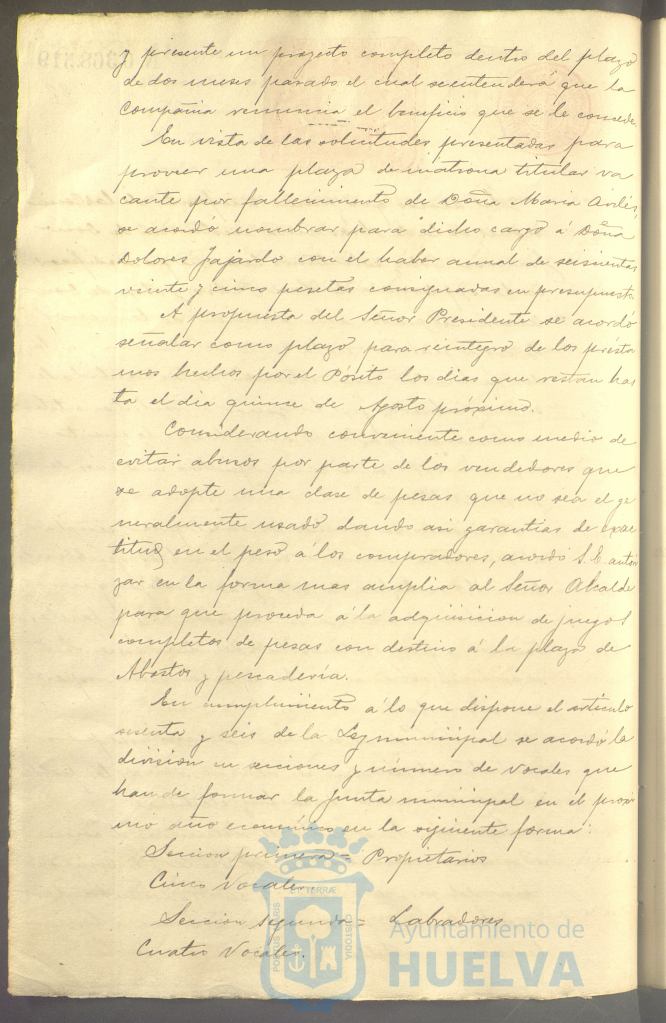 y presente un proyecto completo dentro del plazo
de dos meses pasado el cual se entenderá que la
Compañia renuncia el beneficio que se le concede
En vista de las solicitudes presentadas para
proveer una plaza de matrona titular va
cante por fallecimiento de Doña Maria Avilés,
se acordó nombrar para dicho cargo á Doña
Dolores Fajardo con el haber anual de seiscientas
veinte y cinco pesetas consignadas en presupuesto.
A propuesta del Señor Presidente se acordó
señalar como plazo para reintegro de los presta
mos hechos por el Pósito los dias que restan has
ta el dia quince de Agosto próximo.
Considerando conveniente como medio de
evitar abusos por parte de los vendedores que
se adopte una clase de pesas que no sea el ge
neralmente usado dando asi garantias de exac
titud en el peso á los compradores, acordó S.E. autori
zar en la forma mas amplia al Señor Alcalde
para que proceda á la adquisicion de juegos
completos de pesas con destino á la plaza de
Abastos y pescadería.
En cumplimiento á lo que dispone el artículo
sesenta y seis de la Ley municipal se acordó la
division en secciones y número de vocales que
han de formar la Junta municipal en el proxi
mo año económico en la siguiente forma:
Seccion primera = Propietarios
Cinco Vocales.
Seccion segunda = Labradores
Cuatro Vocales.
PORTUS MARIS ET TERRÆ CUSTODIA
Ayuntamiento de
HUELVA